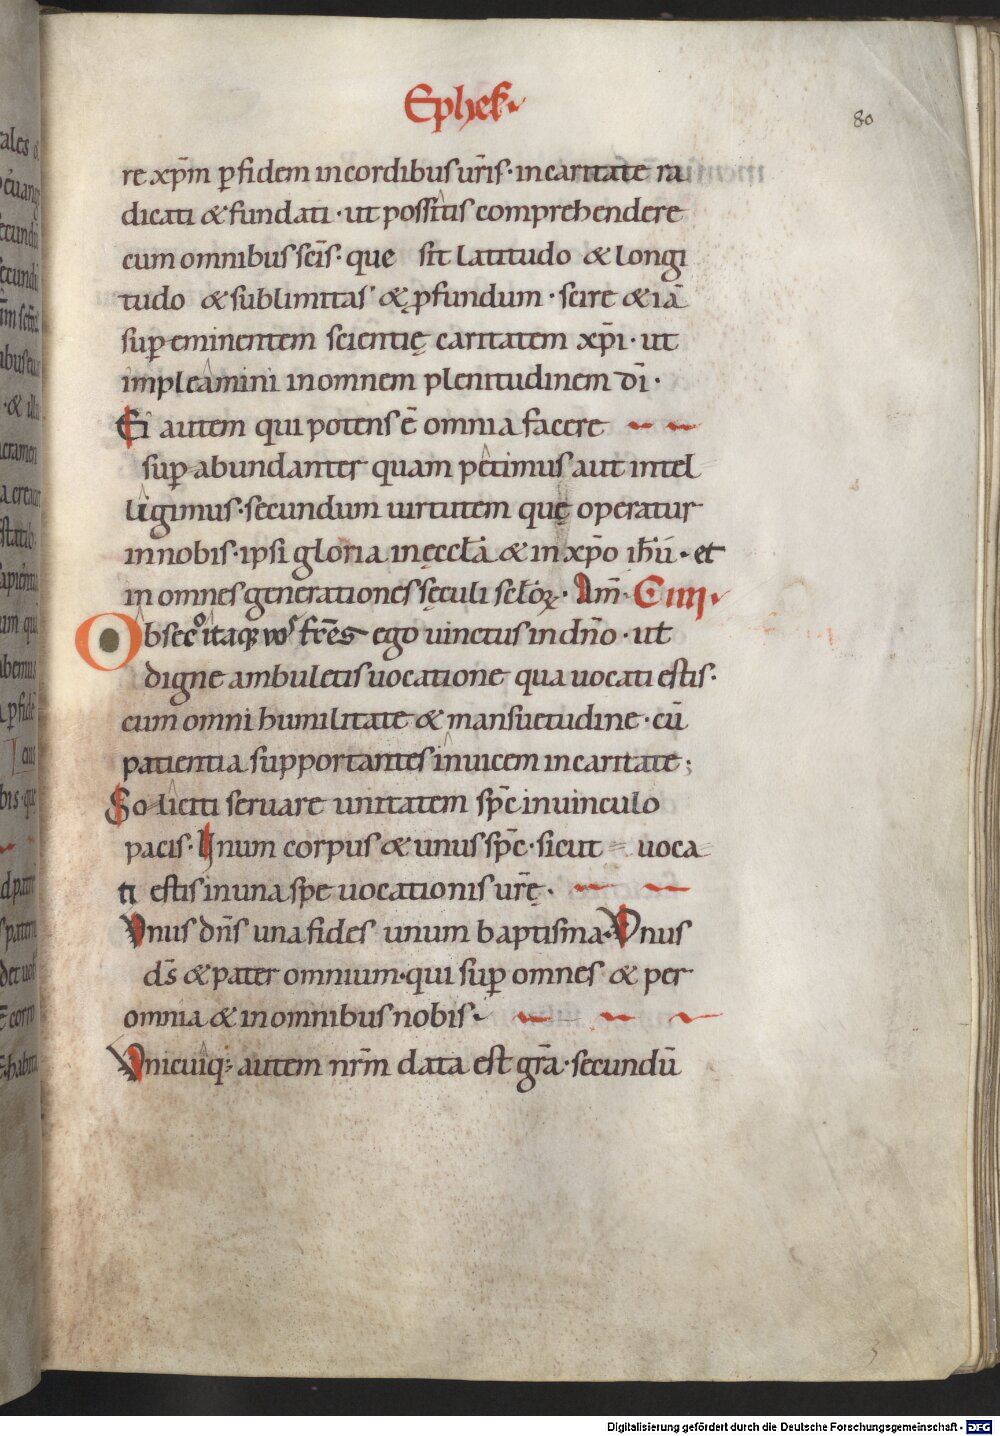 Ephes.
80
re xp̄m p̱ fidem in cordibus ur̄is · in caritate ra
dicati & fundati · ut possitis comprehendere
cum omnibus sc̄is · que sit latitudo & longi
tudo & sublimitas & ꝓfundum · scire & iā
sup̱eminentem scientię caritatem xp̄i · ut
impleamini in omnem plenitudinem dī ·
Ei autem qui potens ē omnia facere
sup̱abundanter quam petimus aut intel
ligimus · secundum uirtutem quę operatur
in nobis · ipsi gloria in ęccl̄a & in xp̄o ih̄ū · et
in omnes generationes sęculi scl̄oꝝ · Am̄ · C · IIII ·
Obsecro itaq; uos fr̄es ego uinctus in dn̄o · ut
digne ambuletis uocatione qua uocati estis ·
cum omni humilitate & mansuetudine · cū
patientia supportantes inuicem in caritate ;
Soliciti seruare unitatem sp̄c in uinculo
pacis · Unum corpus & unus sp̄c · sicut uoca
ti estis in una spe uocationis ur̄ę ·
Unus dn̄s una fides unum baptisma · Unus
ds̄ & pater omnium · qui sup̱ omnes & per
omnia & in omnibus nobis ·
Unicuiq; autem nr̄m data est gr̄a · secundū
Digitalisierung gefördert durch die Deutsche Forschungsgemeinschaft - DFG